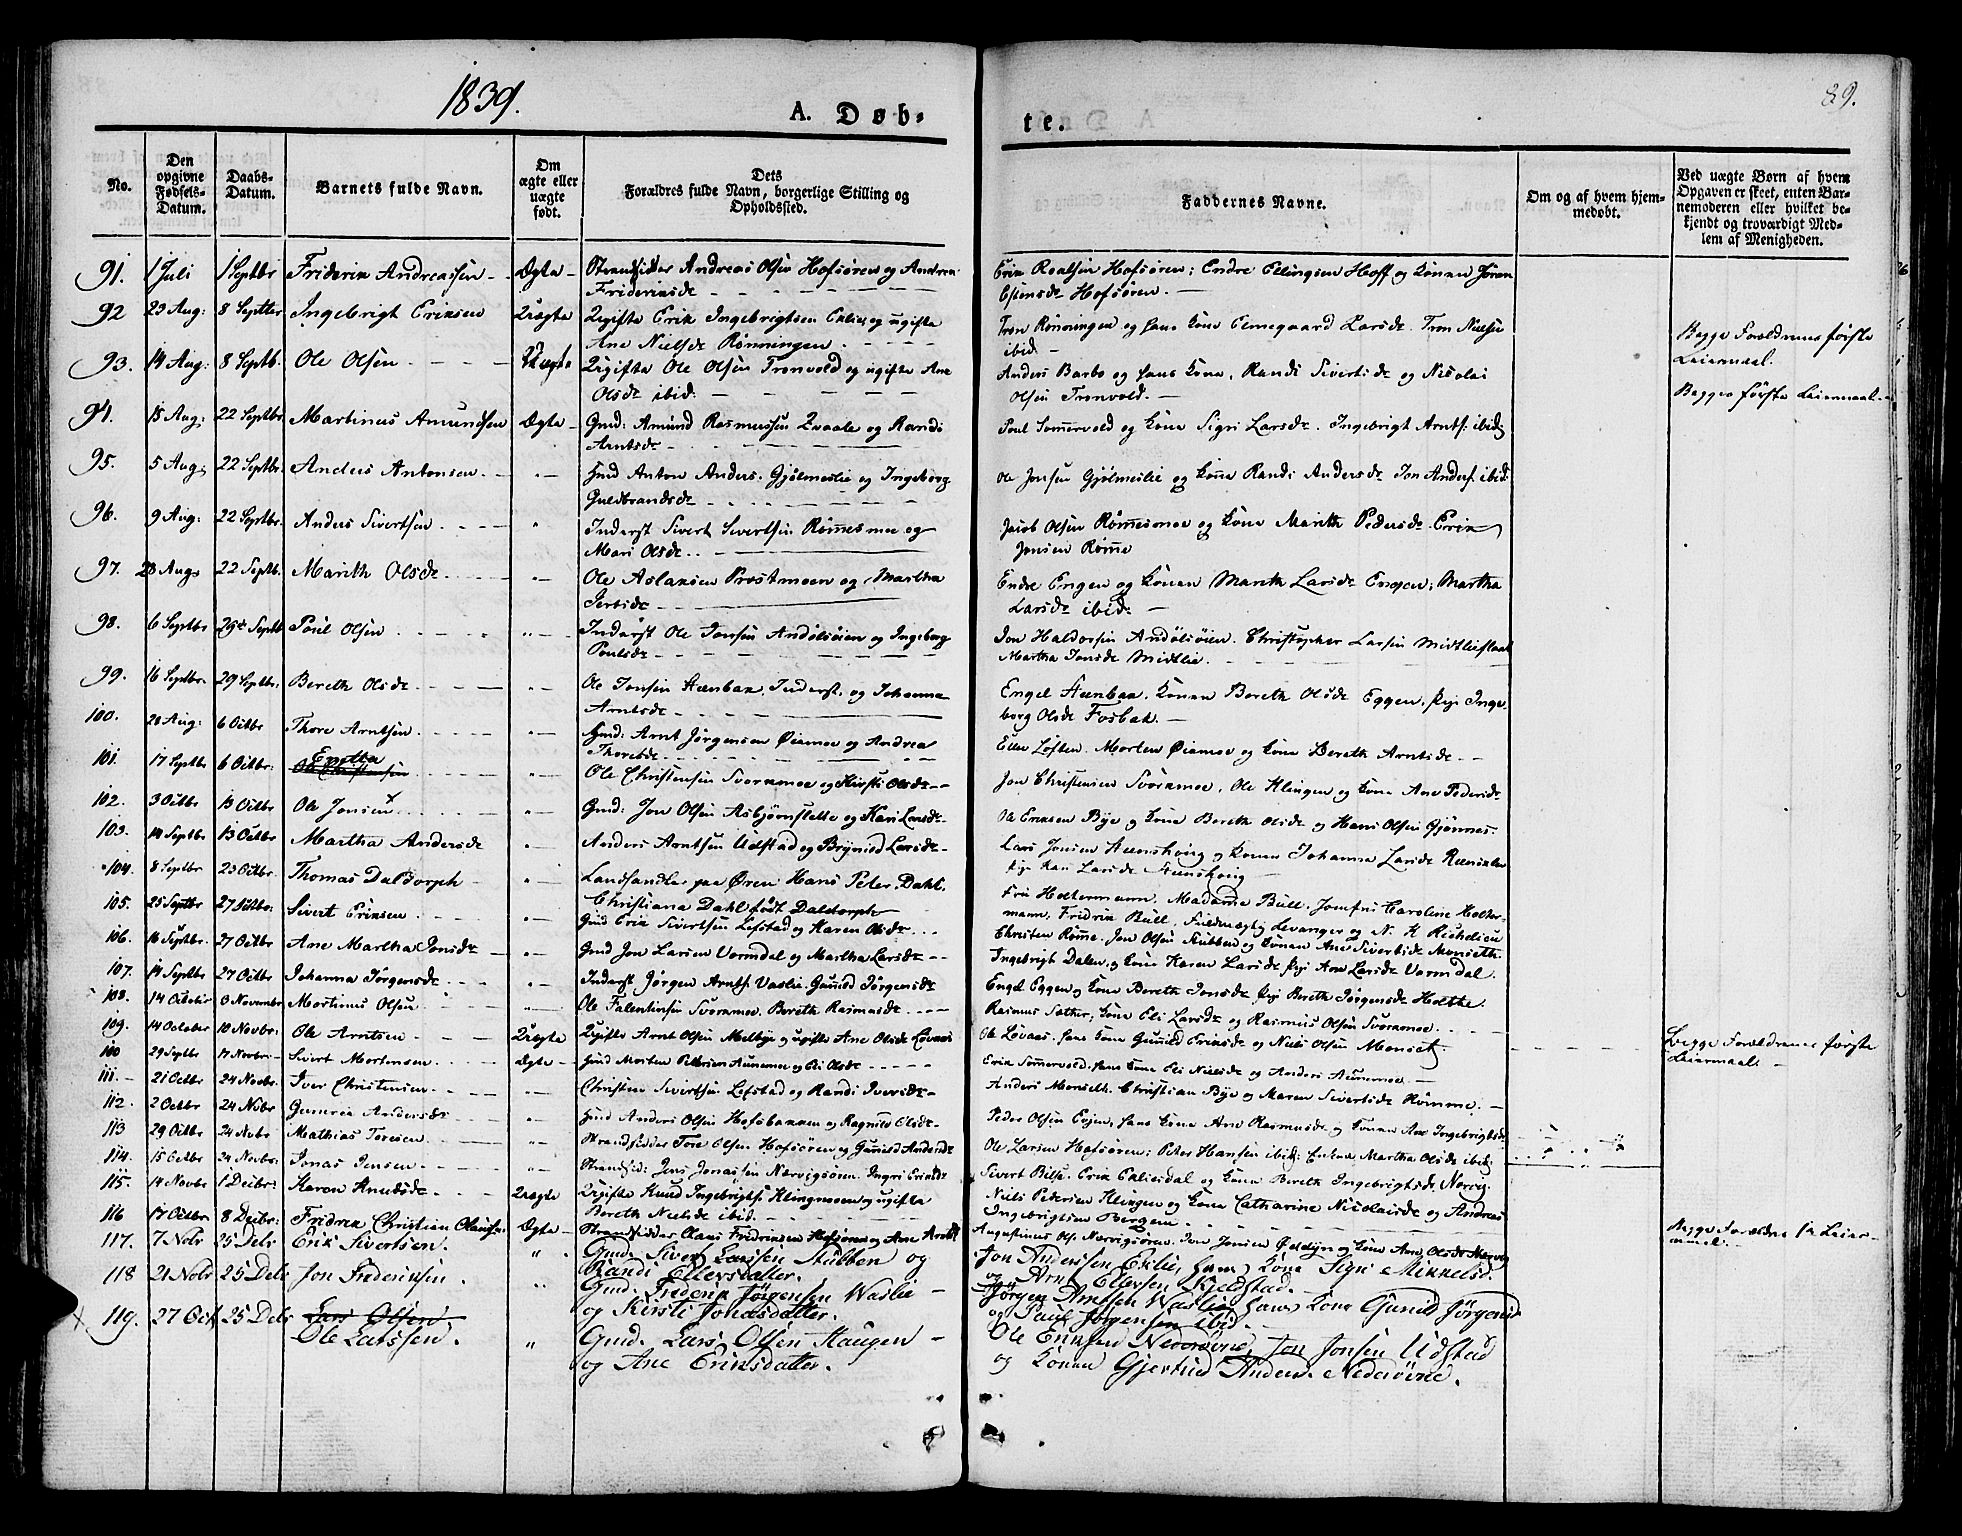 1839.
A. Døb-
te.
89.
No.
Den opgivne Fødsels-Datum.
Daabs-Datum.
Barnets fulde Navn.
Om ægte eller uægte født.
Dets Forældres fulde Navn, borgerlige Stilling og Opholdssted.
Faddernes Navne.
Om og af hvem hjem-medøbt.
Ved uægte Børn af hvem Opgaven er skeet, enten Bar-nemoderen eller hvilket be-kjendt og troværdigt Med-lem af Menigheden.
91. 1 Juli 1 Septbr Friderik Andreassen Ægte Strandsidder Andreas Olsen Hofsøren og Andrea
Frideriksdr
Erik Roalsen Hofsøren; Endre Ellingsen Hoff og Konen Jøran
Estensdr Hofsøren.
92 23 Aug: 8 Septbr Ingebrigt Eriksen Uægte Ugifte Erik Ingebrigtsen Eklie og ugifte
Ane Nielsdr Rønningen.
Tron Rønningen og hans Kone Lars dr. Tron Nielsen
ibid
Begge Foreldrenes første
Leiermaal.
93. 14 Aug: 8 Septb. Ole Olsen Uægte Ugifte Ole Olsen Tronvold og ugifte Ane
Olsdr ibid.
Anders Barbo og hans Kone, Randi Sivertsdr og Nicolai
Olsen Tronvold.
Begges første Leiermaal.
94. 18 Aug: 22 Septbr Martinus Amundsen Ægte Gmd: Amund Rasmussen Qvaale og Randi
Arntsdr
Poul Sommervold og Kone Sigri Larsdr. Ingebrigt Arnts. ibid
95. 5 Aug 22 Septbr. Anders Antonsen Gmd Anton Anders. Gjølmeslie og Ingeborg
Guldbrandsdr
Ole Jonsen Gjølmeslie og Kone Randi Andersdr Jon Anders. ibid
96. 9 Aug: 22 Septbr. Anders Sivertsen Inderst Sivert Sivertsen Rømmesmoe og
Mari Olsdr
Jacob Olsen Rømmesmoe og Kone Marith Pedersdr Erik
Jonsen Rømme
97. 28 Aug 22 Septb. Marith Olsdr Ole Aslaksen Prostmoen og Martha
Endre Engen og Konen Marith Larsdr Engen; Martha
Larsdr ibid:
98. 6 Septbr 29 Septb Poul Olsen Inderst Ole Jonsen Andølsøien og Ingeborg
Poulsdr
Jon Haldorsen Andølsøien. Christopher Larsen Midtlie
Martha Jonsdr Midtlie.
99. 16 Septbr. 29 Septbr. Bereth Olsdr Ole Jonsen Aunbak, Inderst, og Johanna
Arntsdr
Engel Aunbak, Konen Bereth Olsdr Eggen, Pige Inge-
borg Olsdr Fosbak.
100. 28 Aug: 6 Octbr Thore Arntsen Gmd: Arnt Jørgensen Øiamoe og Andrea
Thoresdr
Morten Øiamoe og Kone Bereth Arntsdr
101. 17 Septbr 6 Octbr: Ole Christensen Svorkmoe og Kirsti Olsdr
Jon Christensen Svorkmoe, Ole Klingen og Kone Ane Pedersdr
102. 3 Octbr 13 Octbr Ole Jonsen Gmd: Jon Olsen Asbjørnslette og Kari Larsdr
Ole Eriksen Bye og Kone Bereth Olsdr og Hans Olsen Gjønnes
103. 14 Septbr 13 Octbr Martha Andersdr Anders Arntsen Udstad og Brynild Larsdr
Lars Jonsen Aunshoug og Konen Johanna Larsdr
Pige Kari Larsdr Aunshoug
104. 8 Septbr 23 Octbr. Thomas Daldorph Landhandler paa Øren Hans Peter Dahl.
Christiana Dahl født Daldorph
Fru Holtermann, Madame Bull, Jomfru Caroline Holter-
mann, Fridrik Bull, Levanger og N. K. Richelieu
105. 25 Septbr 27 Octbr: Sivert Eriksen Gmd Erik Sivertsen Lefstad og Karen Olsdr
Christen Rømme. Jon Olsen Stubben og Konen Ane Sivertsdr Monseth
106. 16 Septbr. 27 Octbr Ane Martha Jonsdr Gmd Jon Larsen Vormdal og Martha Larsdr
Ingebrigt Dalen og Kone Karen Larsdr Pige Ane Larsdr Vormdal.
107. 14 Septbr 27 Octbr Johanna Jørgensdr Inderst Jørgen Arnts. Vaslie. Gunild Jørgensdr
Engel Eggen og Kone Bereth Jonsdr Pige Bereth Jørgensdr Holthe.
108. 14 October November Martinus Olsen Ole Falentinsen Svorkmoe, Bereth Rasmusdr
Rasmus Sætter, Kone Eli Larsdr og Rasmus Olsen Svorkmoe.
109. 14 October 10 Novbr: Ole Arntsen Uægte Ugifte Arnt Olsen Melbye og ugifte Ane Olsdr Løvaas
Ole Løvaas. hans Kone Gunild Eriksdr og Niels Olsen Monset
Begge Foreldrenes første
Leiermaal.
110 29 Septbr 17 Novbr. Sivert Mortensen Ægte Gmd Morten Pedersen Aunemoe og Eli Olsdr
Erik Sommervold, hans Kone Eli Nielsdr og Anders Aunemoe.
111. 21 Octbr 24 Novbr. Iver Christensen Christen Sivertsen Lefstad og Randi Iversdr
Anders Monseth. Christian Bye og Maren Sivertsdr Rømme.
112. 2 Octbr 24 Nobr Andersdr Gmd Anders Olsen Hofsbakken og Ragnild Olsdr
Peder Olsen, hans Kone Ane Rasmusdr og Konen Ane Ingebrigtsdr
113 29 Octbr 24 Novbr Mathias Toresen Strandsidder Tore Olsen Hofsøren og Gunild Andersdr
Ole Larsen Hofsøren; Peter Hansen ibid; Enken Martha Olsdr ibid:
114. 15 Octbr 24 Novbr: Jonas Jensen Strandsid: Jens Jonassen Nærvigsøren. Ingri Eriksdr
Sivert Erik Eklisdal og Kone Bereth Ingebrigtsdr Nærvig
115. 14 Novbr 1 Decbr: Karen Knudsdr Uægte Ugifte Knud Ingebrigts. Klingmoen og ugifte
Bereth Nielsdr ibid.
Niels Pedersen Klingen og Kone Catharine Nicolaisdr og Andreas
Ingebrigtsen Bergem.
Begge Foreldres 1ste Leier-
maal.
116 17 Octbr 8 Decbr: Fridrik Christian Olaussen Ægte Strandsidder Claus Fredriksen Hofsøren og Ane
Augustinus Ols. Nærvigsøren. Jon Jonsen og Kone Ane Olsdr Nærvig
117. 7 Nobr 25 Debr Erik Sivertsen. Gmd. Sivert Larssen Stubben og
Randi Ellersdatter.
Jon Anderssen Eklie, hans Kone Sigri Mikkelsd.
og Arnt Ellersen Kjelstad.
118 21 Nobr 25 Debr Jon Frideriksen. Gmd. Frederik Jørgensen Waslie
og Kirsti Jonasdatter.
Jørgen Arntsen Waslie, hans Kone Gunild Jørgensd.
og Paul Jørgensen ibid.
119. 27 Oct 25 Debr Lars Olsen
Ole Larssen. Gmd. Lars Olsen Haugen
og Ane Eriksdatter.
Ole Eriksen Nederøvne, Jon Jonsen Udstad
og Konen Gjertrud Anders. Nederøvne.